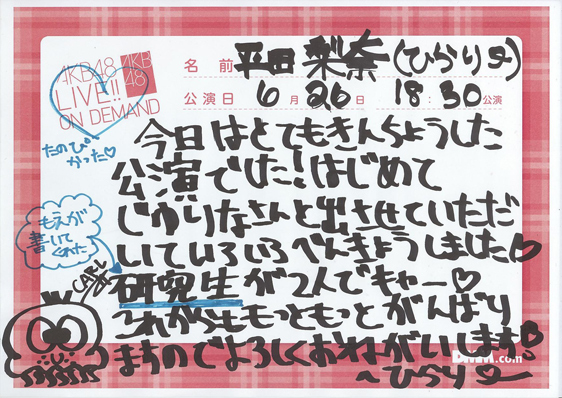 AKB48
LIVE!!
ON DEMAND
AKB
48
名前 平田 梨奈 (ひらりー)
公演日 6月 26日 18:30公演
たのしかった♡
今日はとてもきんちょうした
公演でした!はじめて
じゅりなさんと出させていただ
いていろいろべんきょうしました♡
もえが
書いて
くれた
CARL
研究生が2人でキャー♡
これからももっともっとがんばり
ますのでよろしくおねがいします♡
DMM.com
~ひらりー